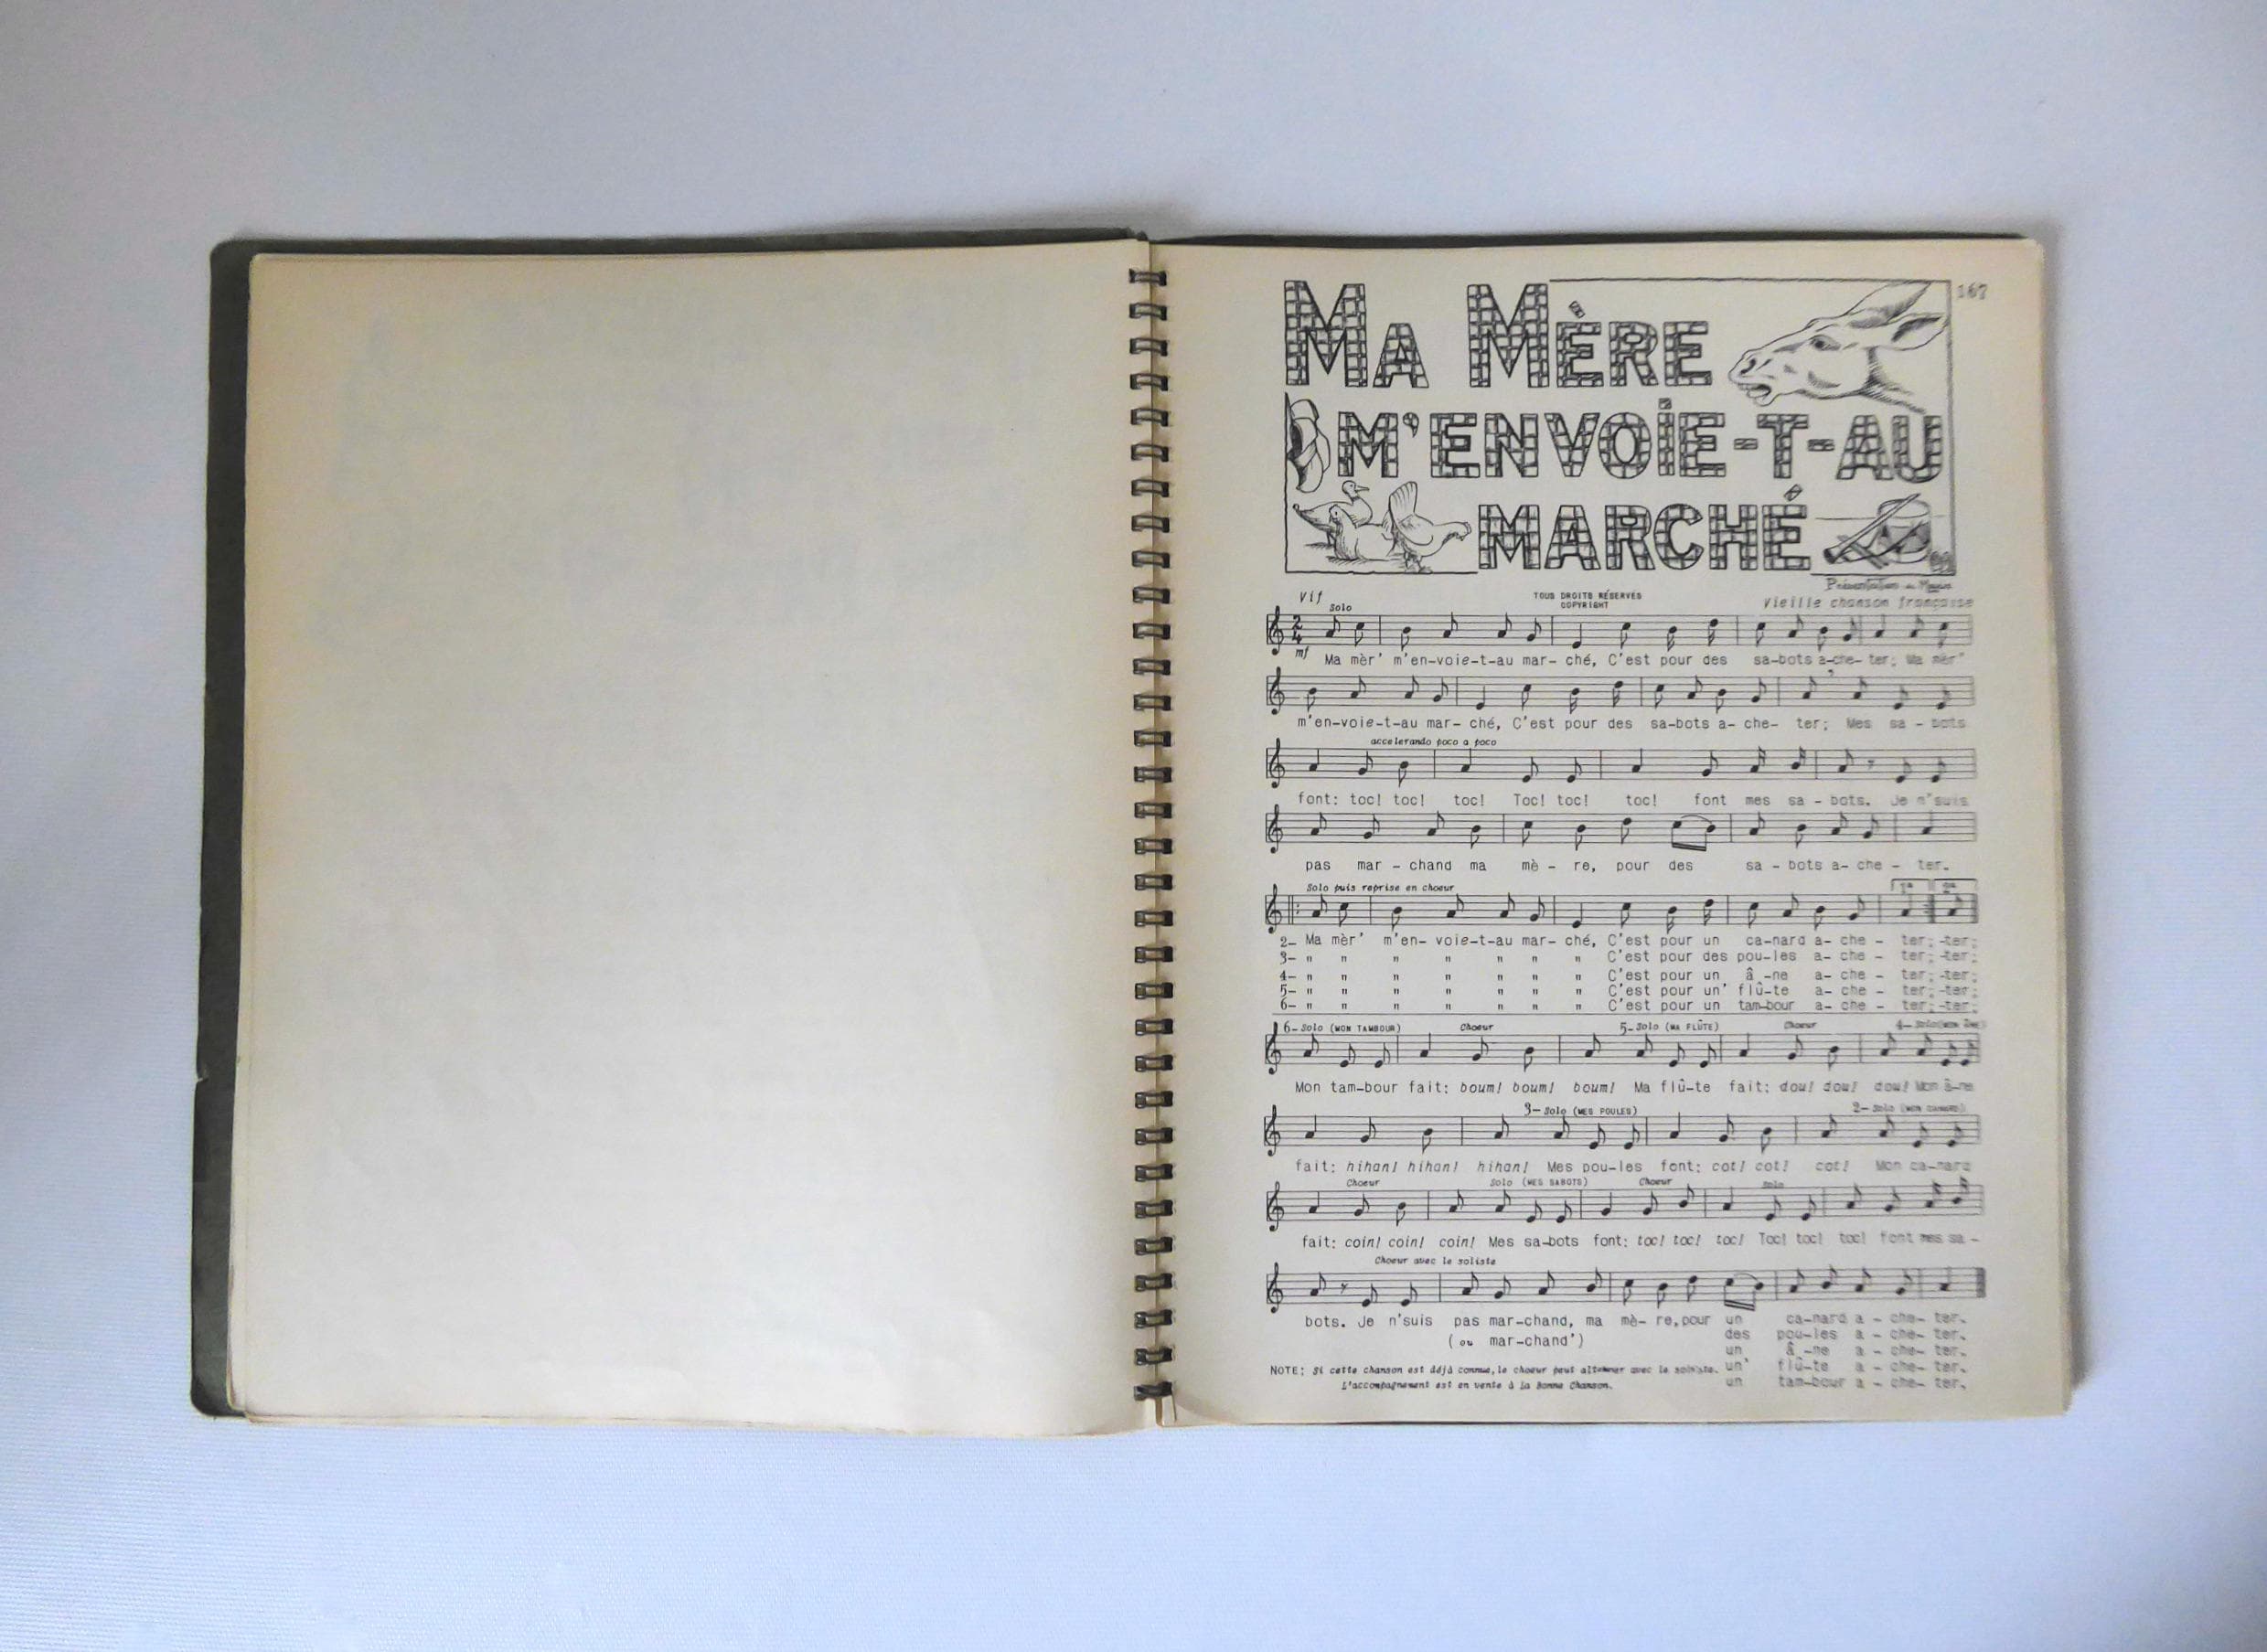 167
MA MÈRE
M'ENVOIE-T-AU
MARCHÉ
Vif
TOUS DROITS RÉSERVÉS
COPYRIGHT
Vieille chanson française
Solo
mf
Ma mèr' m'en-voie-t-au mar- ché, C'est pour des sa-bots a-che- ter; Ma mèr'
m'en-voie-t-au mar- ché, C'est pour des sa-bots a- che- ter; Mes sa - bots
accelerando poco a poco
font: toc! toc! toc! Toc! toc! toc! font mes sa - bots. Je n'suis
pas mar - chand ma mè - re, pour des sa - bots a- che - ter.
Solo puis reprise en choeur
2- Ma mèr' m'en- voie-t-au mar- ché, C'est pour un ca-nard a- che - ter; -ter;
3- " " " " " " " C'est pour des pou-les a- che - ter; -ter;
4- " " " " " " " C'est pour un â -ne a- che - ter; -ter;
5- " " " " " " " C'est pour un' flû-te a- che - ter; -ter;
6- " " " " " " " C'est pour un tam-bour a- che - ter; -ter;
6- Solo (MON TAMBOUR) Choeur 5- Solo (MA FLÛTE) Choeur 4- Solo (MON ÂNE)
Mon tam-bour fait: boum! boum! boum! Ma flû-te fait: dou! dou! dou! Mon â-ne
3- Solo (MES POULES) 2- Solo (MON CANARD)
fait: hihan! hihan! hihan! Mes pou-les font: cot! cot! cot! Mon ca-nard
Choeur Solo (MES SABOTS) Choeur Solo
fait: coin! coin! coin! Mes sa-bots font: toc! toc! toc! Toc! toc! toc! font mes sa -
Choeur avec le soliste
bots. Je n'suis pas mar-chand, ma mè- re, pour un ca-nard a - che- ter.
(ou mar-chand') des pou-les a - che- ter.
un â -ne a - che- ter.
NOTE: Si cette chanson est déjà connue, le choeur peut alterner avec le soliste. un' flû-te a - che- ter.
L'accompagnement est en vente à la Bonne Chanson. un tam-bour a - che- ter.